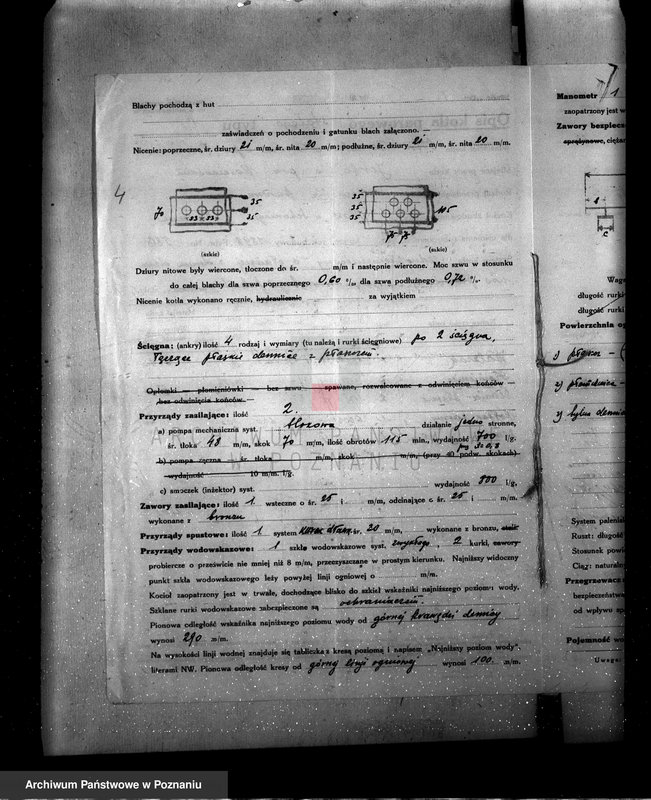 Blachy pochodzą z hut
zaświadczeń o pochodzeniu i gatunku blach załączono. —
Nicenie: poprzeczne, śr. dziury 21 m/m, śr. nita 20 m/m; podłużne, śr. dziury 21 m/m, śr. nita 20 m/m.
4
70 35 35 53 53
35 35 35 105 70 70
(szkic) (szkic)
Dziury nitowe były wiercone, tłoczone do śr. m/m i następnie wiercone. Moc szwu w stosunku
do całej blachy dla szwa poprzecznego 0,60 %, dla szwa podłużnego 0,72 %.
Nicenie kotła wykonano ręcznie, hydraulicznie za wyjątkiem
Ścięgna: (ankry) ilość 4 rodzaj i wymiary (tu należą i rurki ścięgniowe) po 2 ścięgna,
łączące płaskie dennice z płaszczem.
Opłomki — płomieniówki — bez szwu — spawane, rozwalcowane z odwinięciem końców —
bez odwinięcia końców. —
Przyrządy zasilające: ilość 2.
a) pompa mechaniczna syst. działanie jedno stronne,
śr. tłoka 48 m/m, skok 70 m/m, ilość obrotów 115 min., wydajność 700 l/g.
b) pompa ręczna śr. tłoka m/m, skok m/m, (przy 40 podw. skokach)
wydajność 10 m/m. l/g.
c) smoczek (inżektor) syst. wydajność 900 l/g.
Zawory zasilające: ilość 1 wsteczne o śr. 25 i m/m, odcinające o śr. 25 i m/m.
wykonane z bronzu
Przyrządy spustowe: ilość 1 system śr. 20 m/m, wykonane z bronzu,
Przyrządy wodowskazowe: 1 szkła wodowskazowe syst. zwykłego, 2 kurki, zawory
probiercze o prześwicie nie mniej niż 8 m/m, przeczyszczane w prostym kierunku. Najniższy widoczny
punkt szkła wodowskazowego leży powyżej linji ogniowej o m/m.
Kocioł zaopatrzony jest w trwałe, dochodzące blisko do szkieł wskaźniki najniższego poziomu wody.
Szklane rurki wodowskazowe zabezpieczone są ochraniaczem.
Pionowa odległość wskaźnika najniższego poziomu wody od górnej krawędzi dennicy
wynosi 290 m/m.
Na wysokości linji wodnej znajduje się tabliczka z kresą poziomą i napisem „Najniższy poziom wody",
literami NW. Pionowa odległość kresy od górnej linji ogniowej wynosi 100 m/m.
Manometr 1
zaopatrzony jest w
Zawory bezpiecz
sprężynowe, cięża
Waga
długość rurki
długość rurki
Powierzchnia og
1) płaszcz — (
2) płomienica —
3) tylna dennica
System palenis
Ruszt: długość
Stosunek powie
Ciąg: naturalny
Przegrzewacz
bezpieczeństwa
od wpływu sp
Pojemność wo
Uwaga:
ARCHIWUM PAŃSTWOWE
W POZNANIU
Archiwum Państwowe w Poznaniu